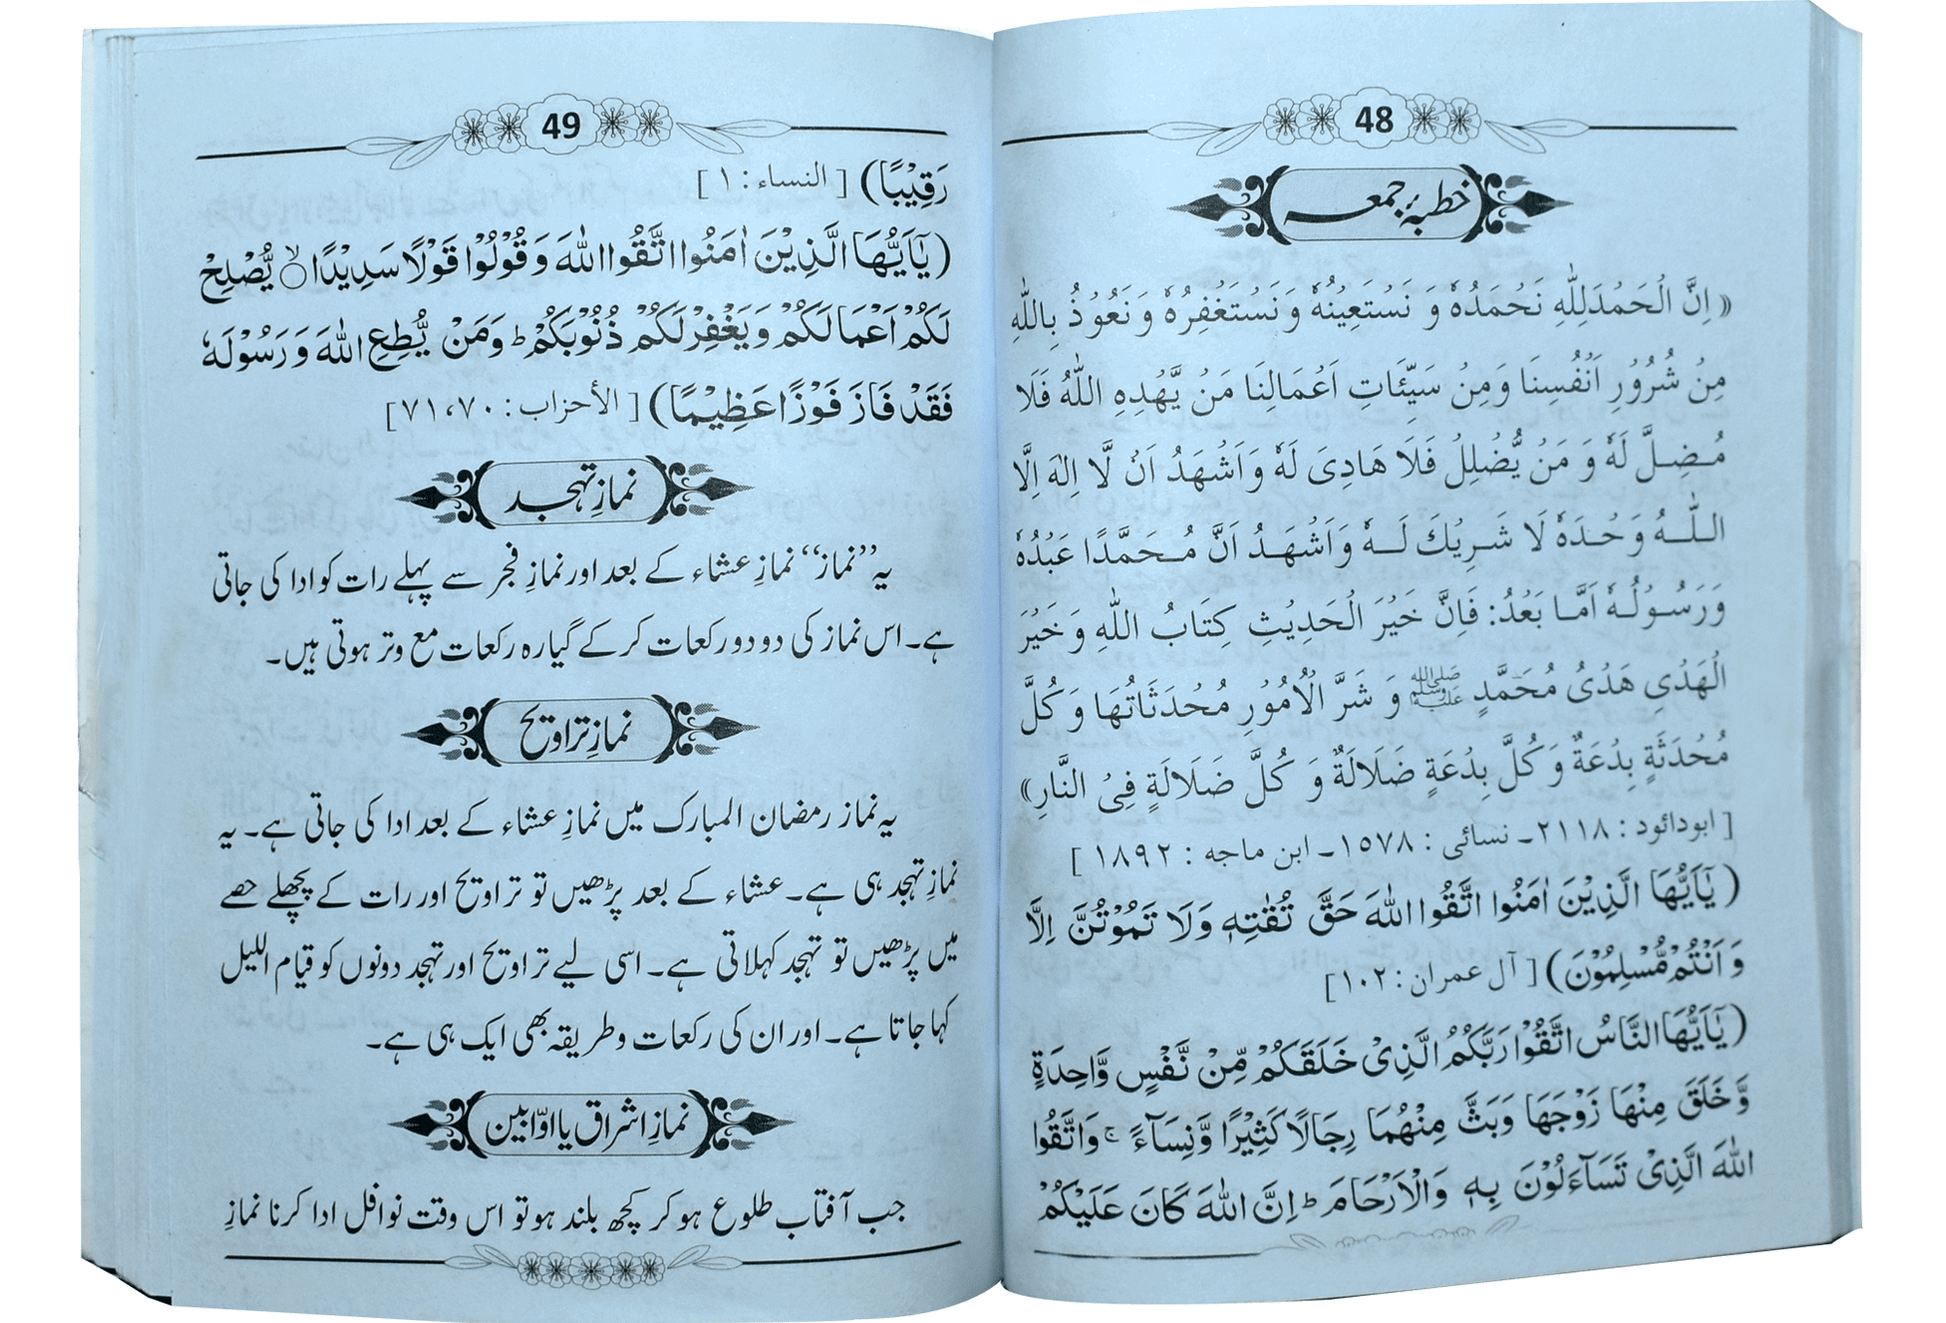 48
خطبۂ جمعہ
﴿ اِنَّ الْحَمْدَلِلّٰهِ نَحْمَدُهٗ وَ نَسْتَعِيْنُهٗ وَنَسْتَغْفِرُهٗ وَنَعُوْذُ بِاللّٰهِ
مِنْ شُرُوْرِ اَنْفُسِنَا وَمِنْ سَيِّئَاتِ اَعْمَالِنَا مَنْ يَّهْدِهِ اللّٰهُ فَلَا
مُضِلَّ لَهٗ وَ مَنْ يُّضْلِلْ فَلَا هَادِىَ لَهٗ وَاَشْهَدُ اَنْ لَّا اِلٰهَ اِلَّا
اللّٰهُ وَحْدَهٗ لَا شَرِيْكَ لَهٗ وَاَشْهَدُ اَنَّ مُحَمَّدًا عَبْدُهٗ
وَرَسُوْلُهٗ اَمَّا بَعْدُ: فَاِنَّ خَيْرَ الْحَدِيْثِ كِتَابُ اللّٰهِ وَخَيْرَ
الْهَدْىِ هَدْىُ مُحَمَّدٍ ﷺ وَ شَرَّ الْاُمُوْرِ مُحْدَثَاتُهَا وَكُلَّ
مُحْدَثَةٍ بِدْعَةٌ وَكُلَّ بِدْعَةٍ ضَلَالَةٌ وَ كُلَّ ضَلَالَةٍ فِى النَّارِ﴾
[ ابودائود : ٢١١٨ـ نسائى : ١٥٧٨ـ ابن ماجه : ١٨٩٢ ]
(يٰۤاَيُّهَا الَّذِيْنَ اٰمَنُوا اتَّقُوا اللّٰهَ حَقَّ تُقٰتِهٖ وَلَا تَمُوْتُنَّ اِلَّا
وَاَنْتُمْ مُّسْلِمُوْنَ) [ آل عمران : ١٠٢]
(يٰۤاَيُّهَا النَّاسُ اتَّقُوْا رَبَّكُمُ الَّذِىْ خَلَقَكُمْ مِّنْ نَّفْسٍ وَّاحِدَةٍ
وَّخَلَقَ مِنْهَا زَوْجَهَا وَبَثَّ مِنْهُمَا رِجَالًا كَثِيْرًا وَّنِسَآءً ۚ وَاتَّقُوا
اللّٰهَ الَّذِىْ تَسَآءَلُوْنَ بِهٖ وَالْاَرْحَامَ ؕ اِنَّ اللّٰهَ كَانَ عَلَيْكُمْ
49
رَقِيْبًا) [ النساء : ١ ]
(يٰۤاَيُّهَا الَّذِيْنَ اٰمَنُوا اتَّقُوا اللّٰهَ وَقُوْلُوْا قَوْلًا سَدِيْدًا ۙ يُّصْلِحْ
لَكُمْ اَعْمَالَكُمْ وَيَغْفِرْ لَكُمْ ذُنُوْبَكُمْ ؕ وَمَنْ يُّطِعِ اللّٰهَ وَرَسُوْلَهٗ
فَقَدْ فَازَ فَوْزًا عَظِيْمًا) [ الأحزاب : ٧٠،٧١]
نمازِ تہجد
یہ ’’نماز‘‘ نمازِ عشاء کے بعد اور نمازِ فجر سے پہلے رات کو ادا کی جاتی
ہے۔ اس نماز کی دو دو رکعات کر کے گیارہ رکعات مع وتر ہوتی ہیں۔
نمازِ تراویح
یہ نماز رمضان المبارک میں نمازِ عشاء کے بعد ادا کی جاتی ہے۔ یہ
نمازِ تہجد ہی ہے۔ عشاء کے بعد پڑھیں تو تراویح اور رات کے پچھلے حصے
میں پڑھیں تو تہجد کہلاتی ہے۔ اسی لیے تراویح اور تہجد دونوں کو قیام اللیل
کہا جاتا ہے۔ اور ان کی رکعات و طریقہ بھی ایک ہی ہے۔
نمازِ اشراق یا اوّابین
جب آفتاب طلوع ہو کر کچھ بلند ہو تو اس وقت نوافل ادا کرنا نمازِ